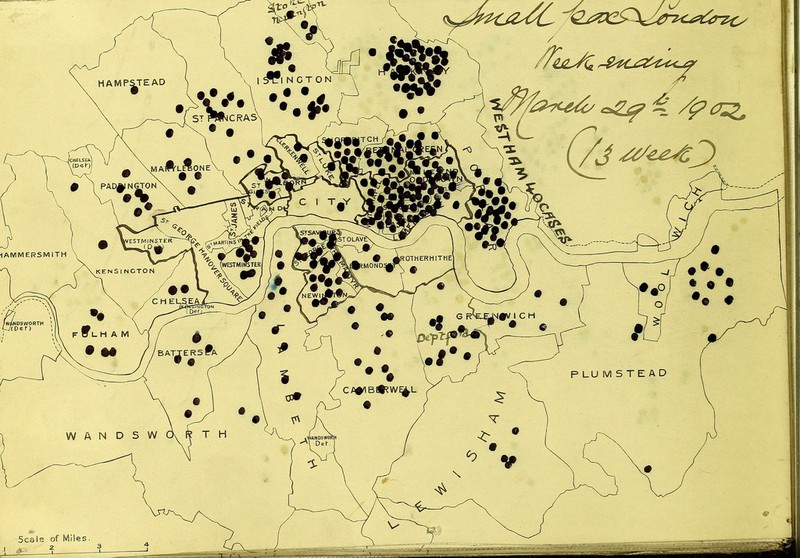 Small pox London
Week ending
March 29th 1902
(13 Week)
Stoke
Newington
HAMPSTEAD
ISLINGTON
ST PANCRAS
WESTHAM 40 CASES
SHOREDITCH
BETHNAL GREEN
CLERKENWELL
ST LUKE
CHELSEA
(Det)
MARYLEBONE
PADDINGTON
HOLBORN
CITY
STRAND
ST JAMES
ST GEORGE HANOVER SQUARE
ST MARTINS IN THE FIELDS
POPLAR
WESTMINSTER
(D)
WESTMINSTER
ST SAVIOURS
ST OLAVE
HAMMERSMITH
KENSINGTON
ROTHERHITHE
NEWINGTON
CHELSEA
KENSINGTON
(Det)
WOOLWICH
WANDSWORTH
(Det)
FULHAM
GREENWICH
Deptford
BATTERSEA
LAMBETH
PLUMSTEAD
CAMBERWELL
WANDSWORTH
WANDSWORTH
Det
LEWISHAM
Scale of Miles.
1 2 3 4